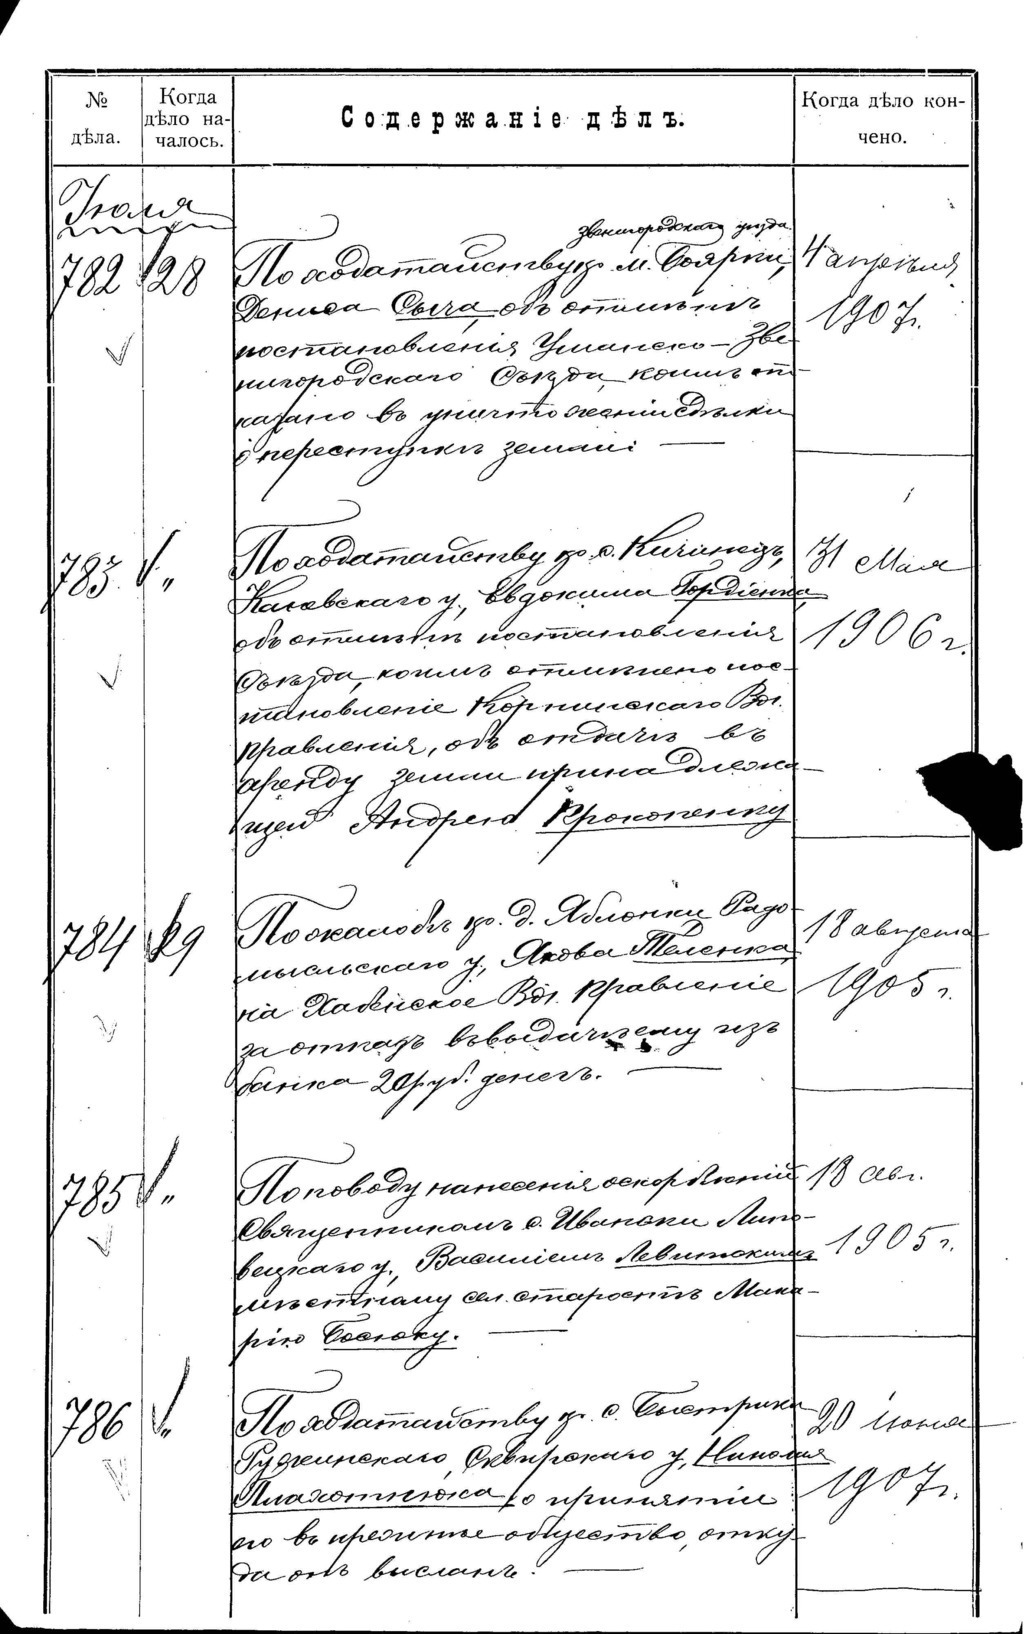 № дѣла.
Когда дѣло началось.
Содержаніе дѣлъ.
Когда дѣло кончено.
Іюля
782 28
Звенигородскаго уѣзда
По ходатайству кр. м. Боярки,
Дениса Сыча, объ отмѣнѣ
постановленія Уманско-Зве-
нигородскаго Съѣзда, коимъ от-
казано въ уничтоженіи сдѣлки
о переступкѣ земли:
4 апрѣля
1907 г.
783 "
По ходатайству кр. с. Кичинецъ,
Каневскаго у., Евдокима Гордіенка,
объ отмѣнѣ постановленія
Съѣзда, коимъ отмѣнено пос-
тановленіе Вол.
Правленія, объ отдачѣ въ
аренду земли принадлежа-
щей Андрею Прокопенку
31 Мая
1906 г.
784 29
По жалобѣ кр. д. Яблонки, Радо-
мысльскаго у., Якова Теленка
на Хабенское Вол. Правленіе
за отказъ въ выдачѣ ему изъ
банка 20 руб. денегъ.
18 августа
1905 г.
785 "
По поводу нанесенія оскорбленій
Священникомъ с. Иваньки Липо-
вецкаго у., Василіемъ Левитскимъ
мѣстному сел. старостѣ Мака-
рію Босюку.
18 Авг.
1905 г.
786 "
По ходатайству кр. с. Быстрика
Ружинскаго, Сквирскаго у., Николая
Плахотнюка, о принятіи
его въ прежнее общество, отку-
да онъ высланъ.
20 июня
1907 г.